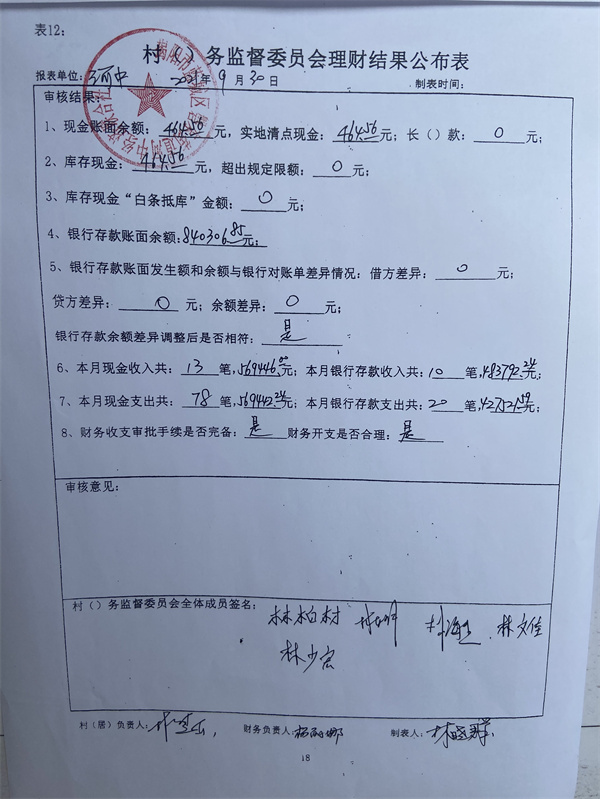 表12：
村（）务监督委员会理财结果公布表
报表单位：河中 2021年9月30日 制表时间：
审核结果：
1、现金账面余额：464.56元，实地清点现金：464.56元；长（）款：0元；
2、库存现金：464.56元，超出规定限额：0元；
3、库存现金“白条抵库”金额：0元；
4、银行存款账面余额：840306.85元；
5、银行存款账面发生额和余额与银行对账单差异情况：借方差异：0元；
贷方差异：0元；余额差异：0元；
银行存款余额差异调整后是否相符：是
6、本月现金收入共：13笔，569446.00元；本月银行存款收入共：10笔，483792.24元；
7、本月现金支出共：78笔，569442.24元；本月银行存款支出共：20笔，427521.59元；
8、财务收支审批手续是否完备：是 财务开支是否合理：是
审核意见：
村（）务监督委员会全体成员签名：
林柏材 林文佳
林少宏
村（居）负责人： 财务负责人： 制表人：
18